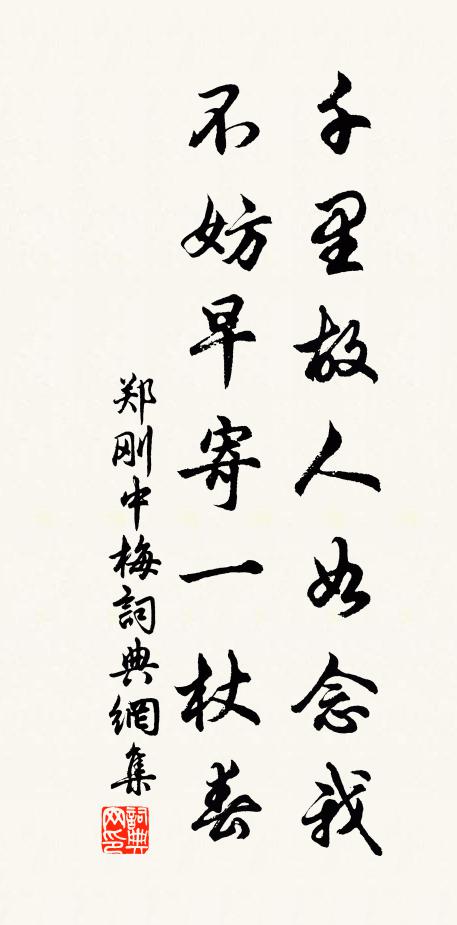 千里故人如念我
不妨早寄一杖春
郑刚中梅詞典網集
詞典
网印